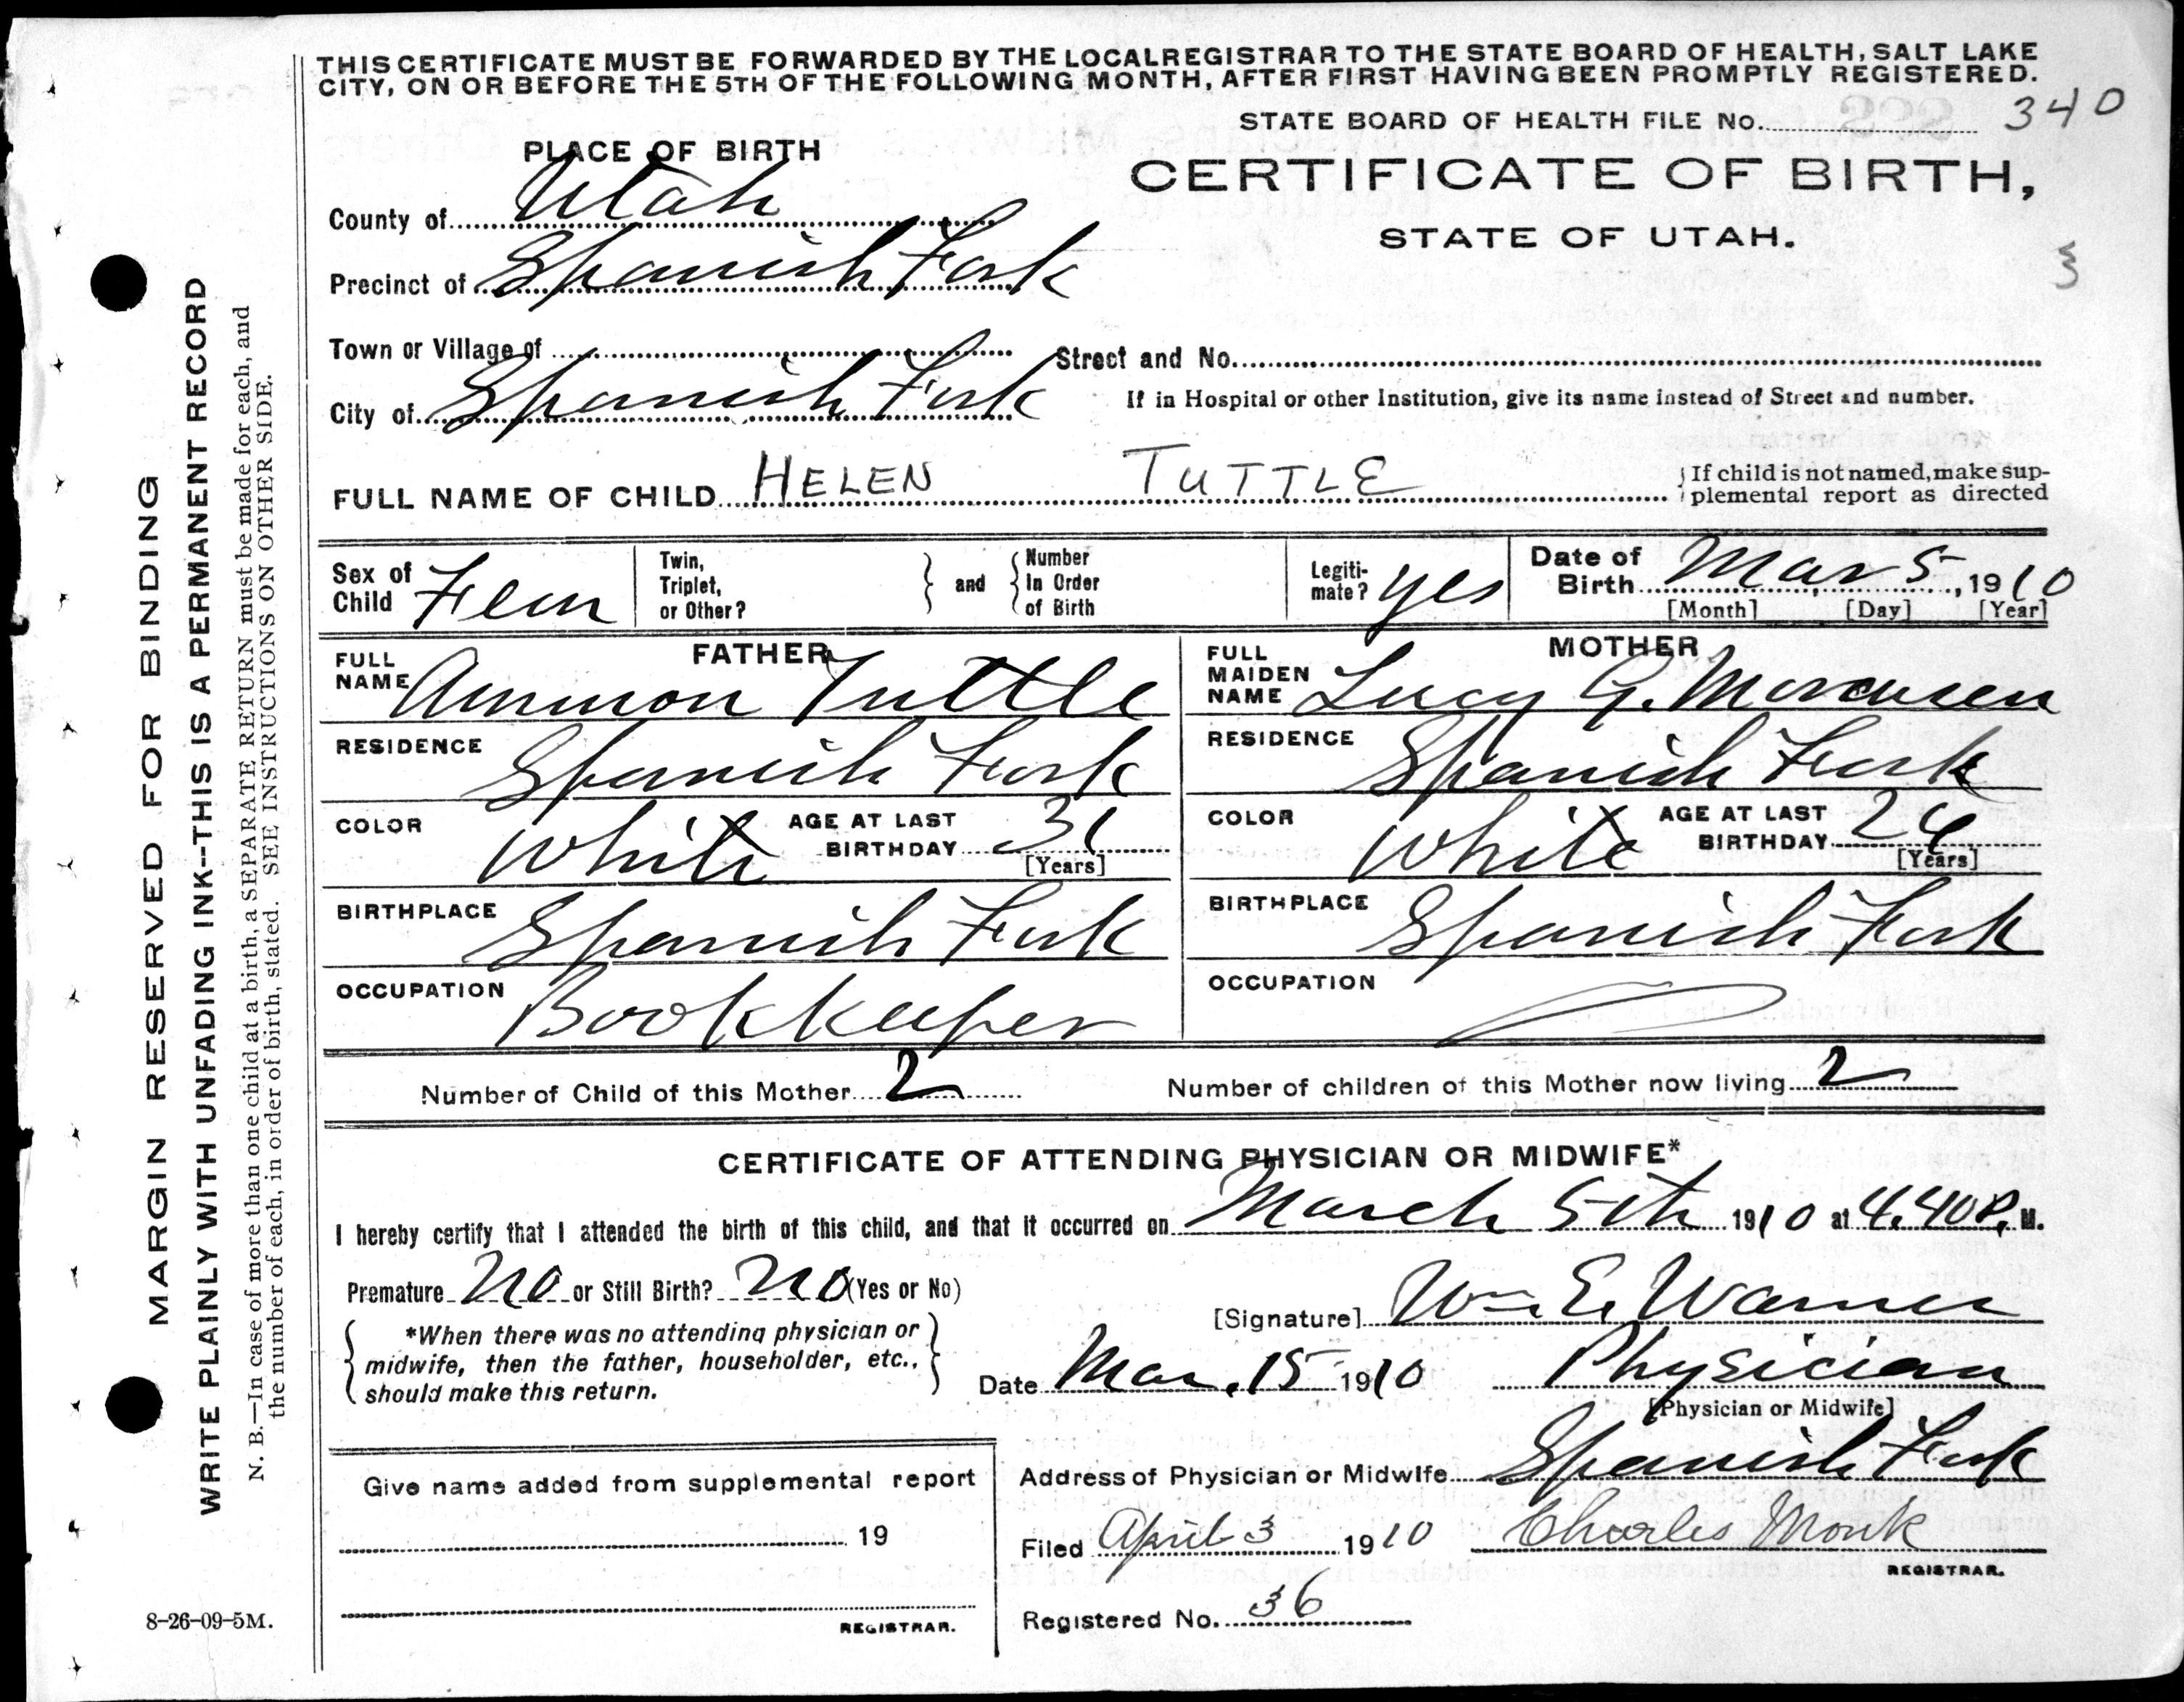 THIS CERTIFICATE MUST BE FORWARDED BY THE LOCAL REGISTRAR TO THE STATE BOARD OF HEALTH, SALT LAKE
CITY, ON OR BEFORE THE 5TH OF THE FOLLOWING MONTH, AFTER FIRST HAVING BEEN PROMPTLY REGISTERED.
STATE BOARD OF HEALTH FILE No. 340
PLACE OF BIRTH
CERTIFICATE OF BIRTH,
STATE OF UTAH.
County of Utah
Precinct of Spanish Fork
Town or Village of
Street and No.
City of Spanish Fork
If in Hospital or other Institution, give its name instead of Street and number.
FULL NAME OF CHILD HELEN TUTTLE
If child is not named, make sup-
plemental report as directed
Sex of Child Fem
Twin, Triplet, or Other?
and
Number In Order of Birth
Legiti-
mate? yes
Date of Birth Mar 5, 1910
[Month] [Day] [Year]
FATHER
FULL NAME Ammon Tuttle
RESIDENCE Spanish Fork
COLOR White
AGE AT LAST BIRTHDAY 31
[Years]
BIRTHPLACE Spanish Fork
OCCUPATION Bookkeeper
MOTHER
FULL MAIDEN NAME Lucy G.
RESIDENCE Spanish Fork
COLOR White
AGE AT LAST BIRTHDAY
[Years]
BIRTHPLACE Spanish Fork
OCCUPATION
Number of Child of this Mother 2
Number of children of this Mother now living 2
CERTIFICATE OF ATTENDING PHYSICIAN OR MIDWIFE*
I hereby certify that I attended the birth of this child, and that it occurred on March 5th 1910 at 4.40 P. M.
Premature No or Still Birth? No (Yes or No)
[Signature] Wm E. Warner
*When there was no attending physician or
midwife, then the father, householder, etc.,
should make this return.
Date Mar. 15 1910
Physician
[Physician or Midwife]
Address of Physician or Midwife Spanish Fork
Give name added from supplemental report
19
REGISTRAR.
Filed April 3 1910 Charles Monk
REGISTRAR.
Registered No. 36
MARGIN RESERVED FOR BINDING
WRITE PLAINLY WITH UNFADING INK--THIS IS A PERMANENT RECORD
N. B.—In case of more than one child at a birth, a SEPARATE RETURN must be made for each, and
the number of each, in order of birth, stated. SEE INSTRUCTIONS ON OTHER SIDE.
8-26-09-5M.